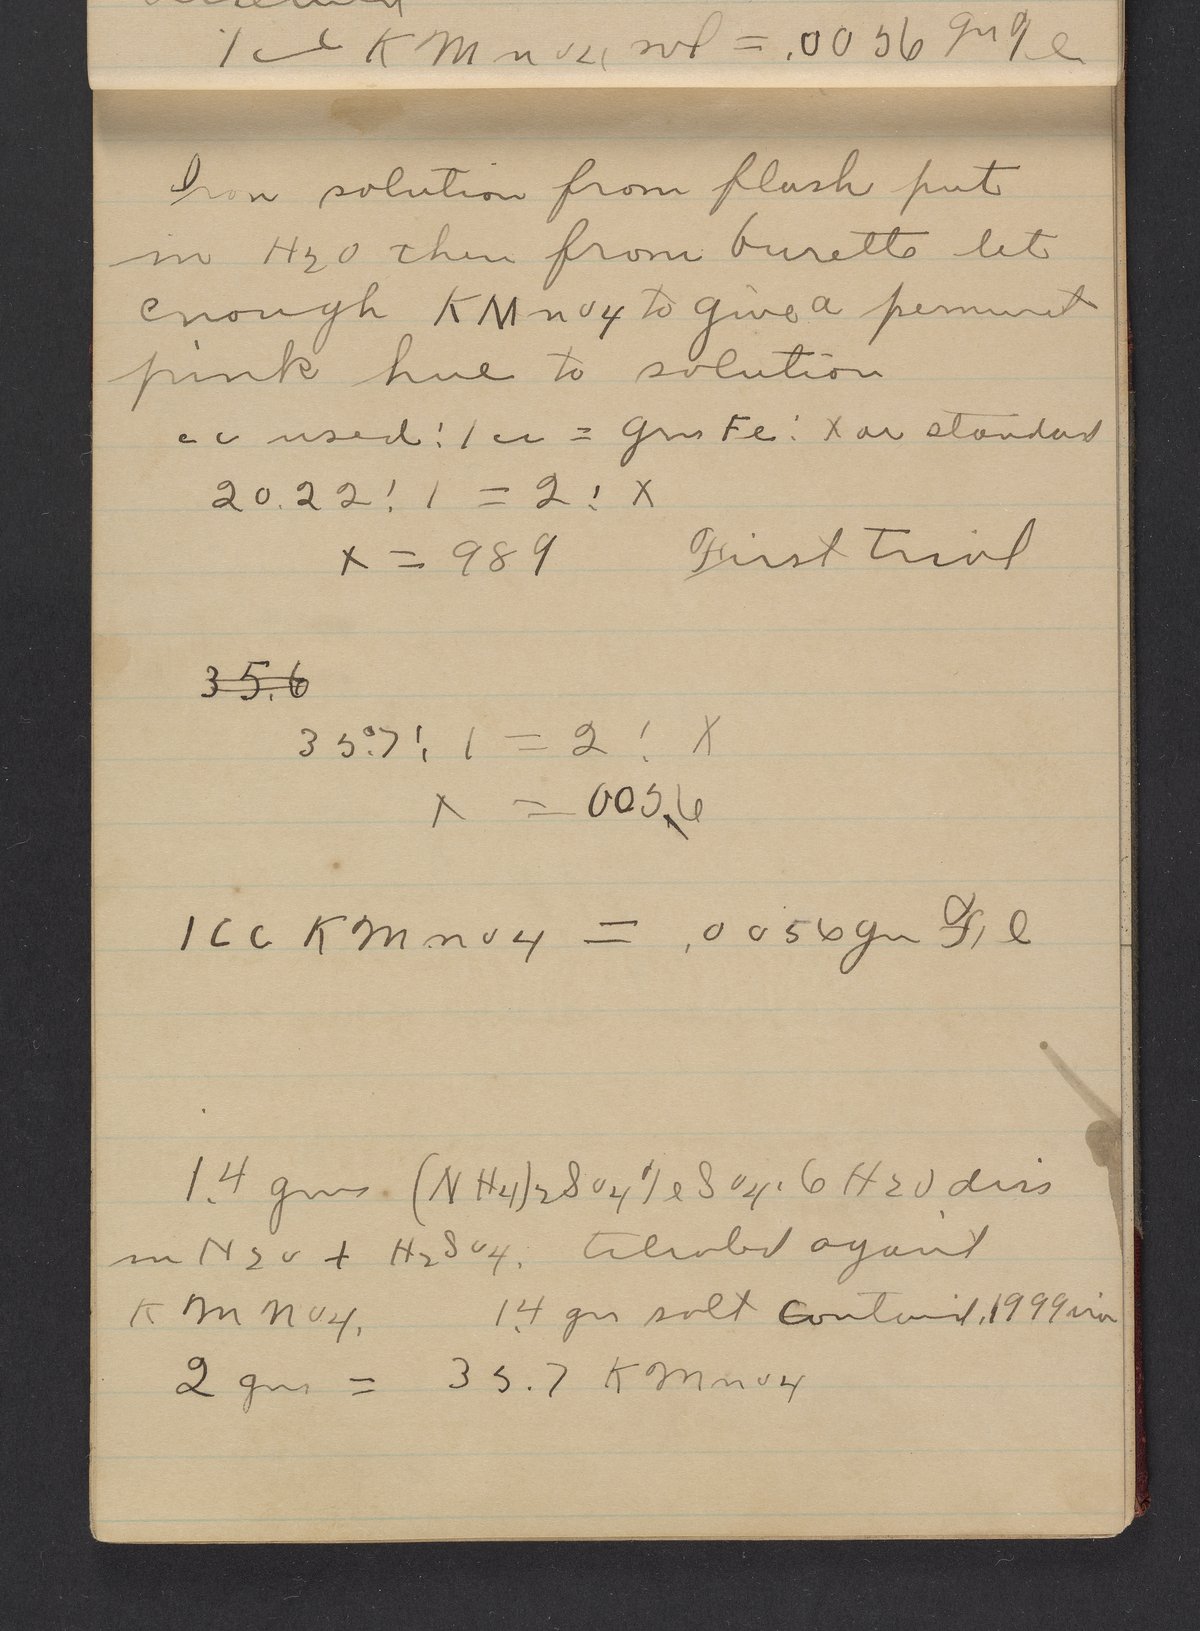 1 cc KMnO4 sol = .0056 gm Fe
Iron solution from flask put
in H2O then from burette let
enough KMnO4 to give a permunt
pink hue to solution
cc used : 1 cc = gms Fe : x or standard
20.22 : 1 = 2 : x
x = 989 First Trial
35.6
35.7 : 1 = 2 : X
x = 0056
1 cc KMnO4 = .0056 gm Fe
1.4 gms (NH4)2SO4 FeSO4.6H2O diss
in H2O + H2SO4. titrated against
KMnO4. 1.4 gm salt contained .1999 iron
2 gms = 35.7 KMnO4